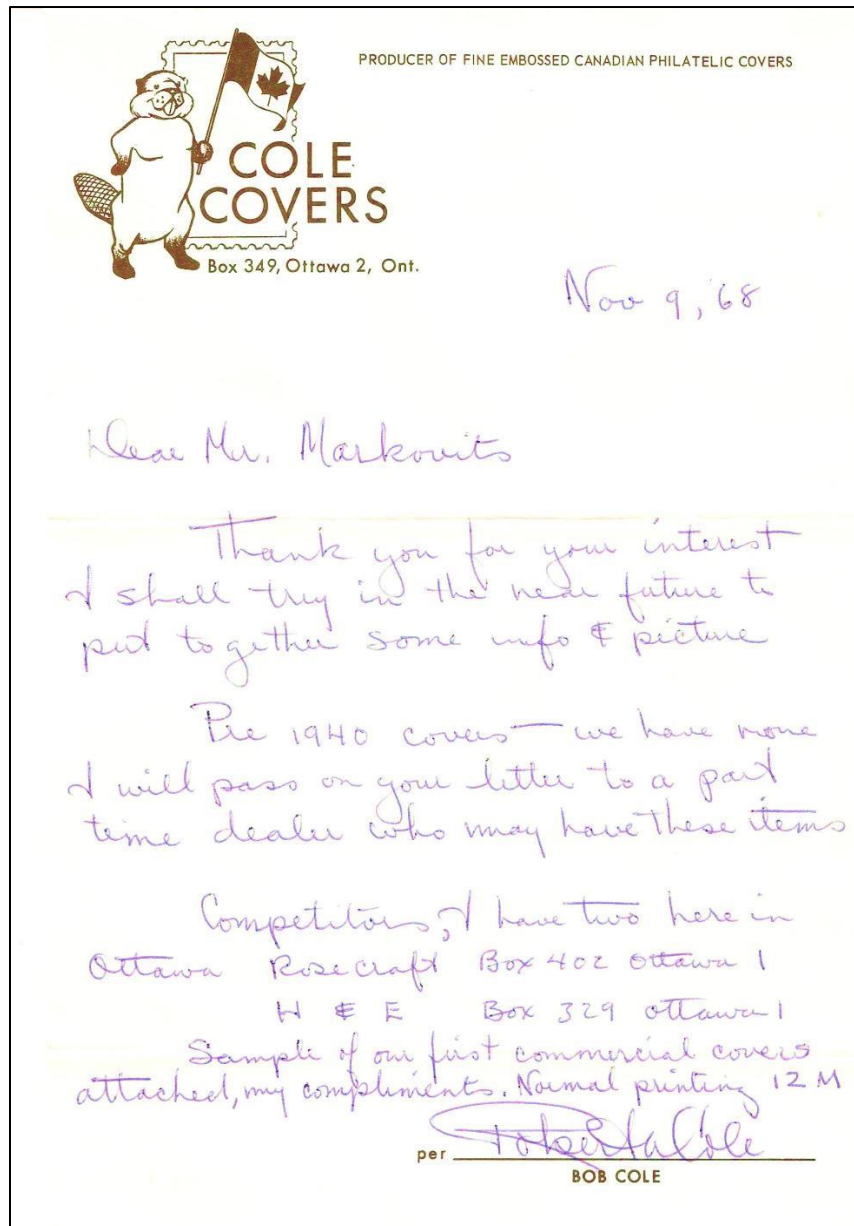 PRODUCER OF FINE EMBOSSED CANADIAN PHILATELIC COVERS
COLE
COVERS
Box 349, Ottawa 2, Ont.
Nov 9, '68
Dear Mr. Markovits
Thank you for your interest
I shall try in the near future to
put together some info & picture
Pre 1940 covers — we have none
I will pass on your letter to a part
time dealer who may have these items
Competitors, I have two here in
Ottawa Rosecraft Box 402 Ottawa 1
H & E Box 329 Ottawa 1
Sample of our first commercial covers
attached, my compliments. Normal printing 12 M
per Robert A Cole
BOB COLE